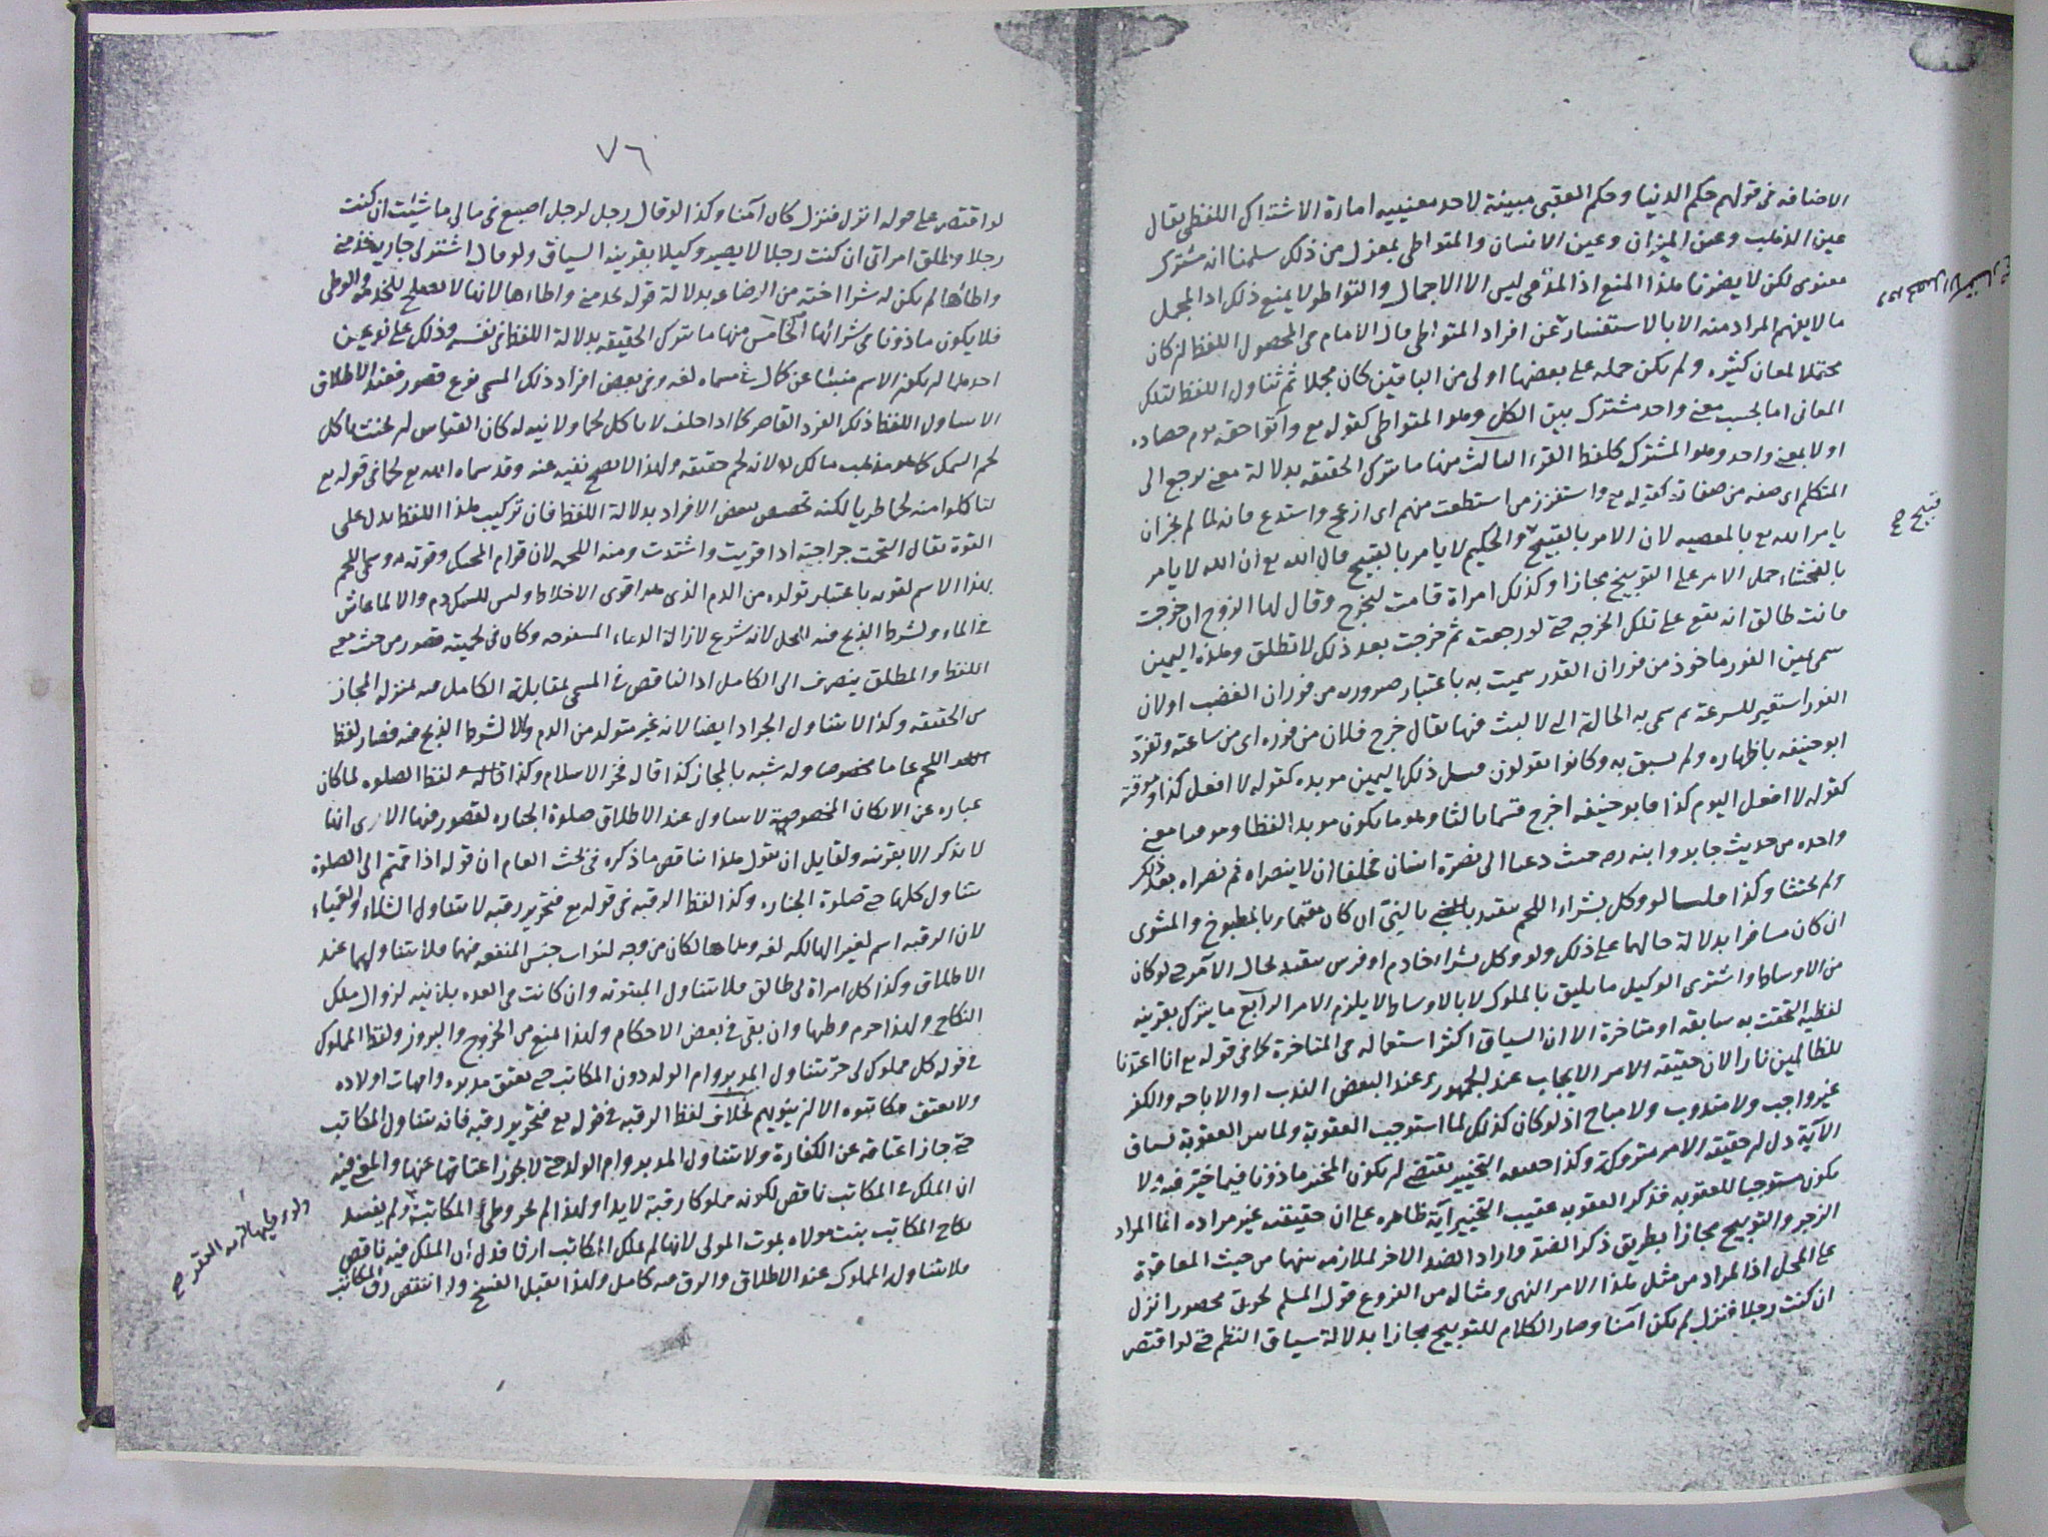 الاضافه فى قولهم حكم الدنيا وحكم العقبى مبينة لاحد معنييه امارة الاشتراك اللفظى يقال
عين الذهب وعين الميزان وعين الانسان والمتواطى بمعزل من ذلك سلمنا انه مشترك
معنوى لكن لا يضرنا هذا المنع اذ المدعى ليس الا الاجمال والتواطو لا يمنع ذلك اذ المجمل
ما لا يفهم المراد منه الا بالاستفسار عن افراد المتواطى قال الامام فى المحصول اللفظ ان كان
محتملا لمعان كثيره ولم يكن حمله على بعضها اولى من الباقين كان مجملا ثم تناول اللفظ لتلك
المعانى اما بحسب معنى واحد مشترك بين الكل وهو المتواطى كقوله تع وآتوا حقه يوم حصاده
اولا بمعنى واحد وهو المشترك كلفظ القرء الثالث منها ما تترك الحقيقه بدلالة معنى يرجع الى
المتكلم اى صفه من صفاته كقوله تع واستفزز من استطعت منهم اى ازعج واستدع فانه لما لم يجز ان
يامر الله تع بالمعصيه لان الامر بالقبيح والحكيم لا يامر بالقبيح قال الله تع ان الله لا يامر
بالفحشاء حمل الامر على التوبيخ مجازا وكذلك امراة قامت لتخرج وقال لها الزوج ان خرجت
فانت طالق انه يقع على تلك الخرجه حتى لو رجعت ثم خرجت بعد ذلك لا تطلق وهذه اليمين
سمى يمين الفور ماخوذ من فوران القدر سميت به باعتبار صدوره من فوران الغضب او لان
الفور استعير للسرعة ثم سمى به الحالة التى لا لبث فيها يقال خرج فلان من فوره اى من ساعته وتفرد
ابو حنيفه باظهاره ولم يسبق به وكانوا يقولون قبل ذلك اليمين موبده كقوله لا افعل كذا وموقتة
كقوله لا افعل اليوم كذا فابو حنيفه اخرج قسما ثالثا وهو ما يكون موبدا لفظا وموقتا معنى
واحده من حديث جابر وابنه رصه حيث دعيا الى نصرة انسان فحلفا ان لا ينصراه ثم نصراه بعد ذلك
ولم يحنثا وكذا قلنا لو وكل بشراء اللحم يتقيد بالنيى ان كان مقيما وبالمطبوخ والمشوى
ان كان مسافرا بدلالة حالهما على ذلك ولو وكل بشراء خادم او فرس يتقيد بحال الآمر حتى لو كان
من الاوساط واشترى الوكيل ما يليق بالملوك لا بالاوساط لا يلزم الامر الرابع ما يترك بقرينه
لفظيه التحقت به سابقه او متاخرة الا ان السياق اكثر استعماله فى المتاخرة كما فى قوله تع انا اعتدنا
للظالمين نارا لان حقيقه الامر الايجاب عند الجمهور وعند البعض الندب او الاباحه والكفر
غير واجب ولا مندوب ولا مباح اذ لو كان كذلك لما استوجب العقوبة ولما بين العقوبة فساق
الآية دل ان حقيقه الامر متروكة وكذا حقيقه التخيير يقتضى ان يكون المخير ماذونا فيما اختير فيه لا
يكون مستوجبا للعقوبه فذكر العقوبه عقيب التخيير آية ظاهره على ان حقيقته غير مراده انما المراد
الزجر والتوبيخ مجازا بطريق ذكر الضد واراد الضد الاخر لملازمه بينهما من حيث المعاقبة
على المحل اذ المراد من مثل هذا الامر النهى ومثاله من الفروع قول المسلم لحربى محصور انزل
ان كنت رجلا فنزل لم يكن آمنا وصار الكلام للتوبيخ مجازا بدلالة سياق النظم حتى لو اقتصر
قبيح صح
٧٦
لو اقتصر على قوله انزل فنزل كان آمنا وكذا لو قال رجل لرجل اصنع فى مالى ما شئت ان كنت
رجلا وطلق امراتى ان كنت رجلا لا يصير وكيلا بقرينه السياق ولو قال اشتر لى جارية تخدمنى
واطاءها لم يكن له شرا اخته من الرضاعه بدلالة قوله تخدمنى واطاءها لانها لا تصلح للخدمه والوطى
فلا يكون ماذونا فى شرائها الخامس منها ما تترك الحقيقه بدلالة اللفظ فى نفسه وذلك على نوعين
احدهما ان يكون الاسم منبئا عن كمال فى مسماه لغه وفى بعض افراد ذلك المسمى نوع قصور فعند الاطلاق
لا يتناول اللفظ ذلك الفرد القاصر كما اذا حلف لا ياكل لحما ولا نيه له كان القياس ان يحنث باكل
لحم السمك كما هو مذهب مالك لانه لحم حقيقه ولهذا لا يصح نفيه عنه وقد سماه الله تع لحما فى قوله تع
لتاكلوا منه لحما طريا لكنه تخصص بعض الافراد بدلالة اللفظ فان تركيب هذا اللفظ يدل على
القوة يقال التحمت جراحته اذا قويت واشتدت ومنه اللحم لان قوام الحيوان وقوته به وسمى اللحم
بهذا الاسم لقوته باعتبار تولده من الدم الذى هو اقوى الاخلاط وليس للسمك دم والا لما عاش
فى الماء ولشرط الذبح فيه للحل لانه شرع لازالة الدماء المسفوحه وكان فى لحميته قصور من حيث معنى
اللفظ والمطلق ينصرف الى الكامل اذ الناقص فى المسمى بمقابلة الكامل فيه بمنزلة المجاز
من الحقيقه وكذا لا يتناول الجراد ايضا لانه غير متولد من الدم ولا لشرط الذبح فيه فصار لفظ
اللحم عاما مخصوصا وله شبه بالمجاز كذا قاله فخر الاسلام وكذا لفظ الصلوه لما كان
عباره عن الاركان المخصوصة لا يتناول عند الاطلاق صلوة الجنازه لقصور فيها الا يرى انها
لا تذكر الا بقرينه ولقايل ان يقول هذا يناقض ما ذكره فى بحث العام ان قوله اذا قمتم الى الصلوة
يتناول كلها حتى صلوة الجنازه وكذا لفظ الرقبه فى قوله تع فتحرير رقبه لا يتناول الشلاء والعمياء
لان الرقبه اسم لغير الهالكه لغه وهما هالكان من وجه لفوات جنس المنفعه منهما فلا يتناولهما عند
الاطلاق وكذا كل امراة لى طالق فلا يتناول المبتوته وان كانت فى العده بلا نيه لزوال ملك
النكاح ولهذا حرم وطيها وان بقى فى بعض الاحكام ولهذا تمنع من الخروج والبروز ولفظ المملوك
فى قوله كل مملوك لى حر يتناول المدبر وام الولد دون المكاتب حتى يعتق مدبروه وامهات اولاده
ولا يعتق مكاتبوه الا ان ينويهم بخلاف لفظ الرقبه فى قوله تع فتحرير رقبه فانه يتناول المكاتب
حتى جاز اعتاقه عن الكفارة ولا يتناول المدبر وام الولد حتى لا يجوز اعتاقها عنها والمعنى فيه
ان الملك فى المكاتب ناقص لكونه مملوكا رقبة لا يدا ولهذا لم يحز وطئ المكاتبة ولم يفسد
نكاح المكاتب بنت مولاه بموت المولى لانها لم تملك المكاتب ارقا فدل ان الملك فيه ناقص
فلا يتناوله المملوك عند الاطلاق والرق فيه كامل ولهذا يقبل الفسخ ولو انتقص رق المكاتب
ولو وطيها لزمه العقر صح